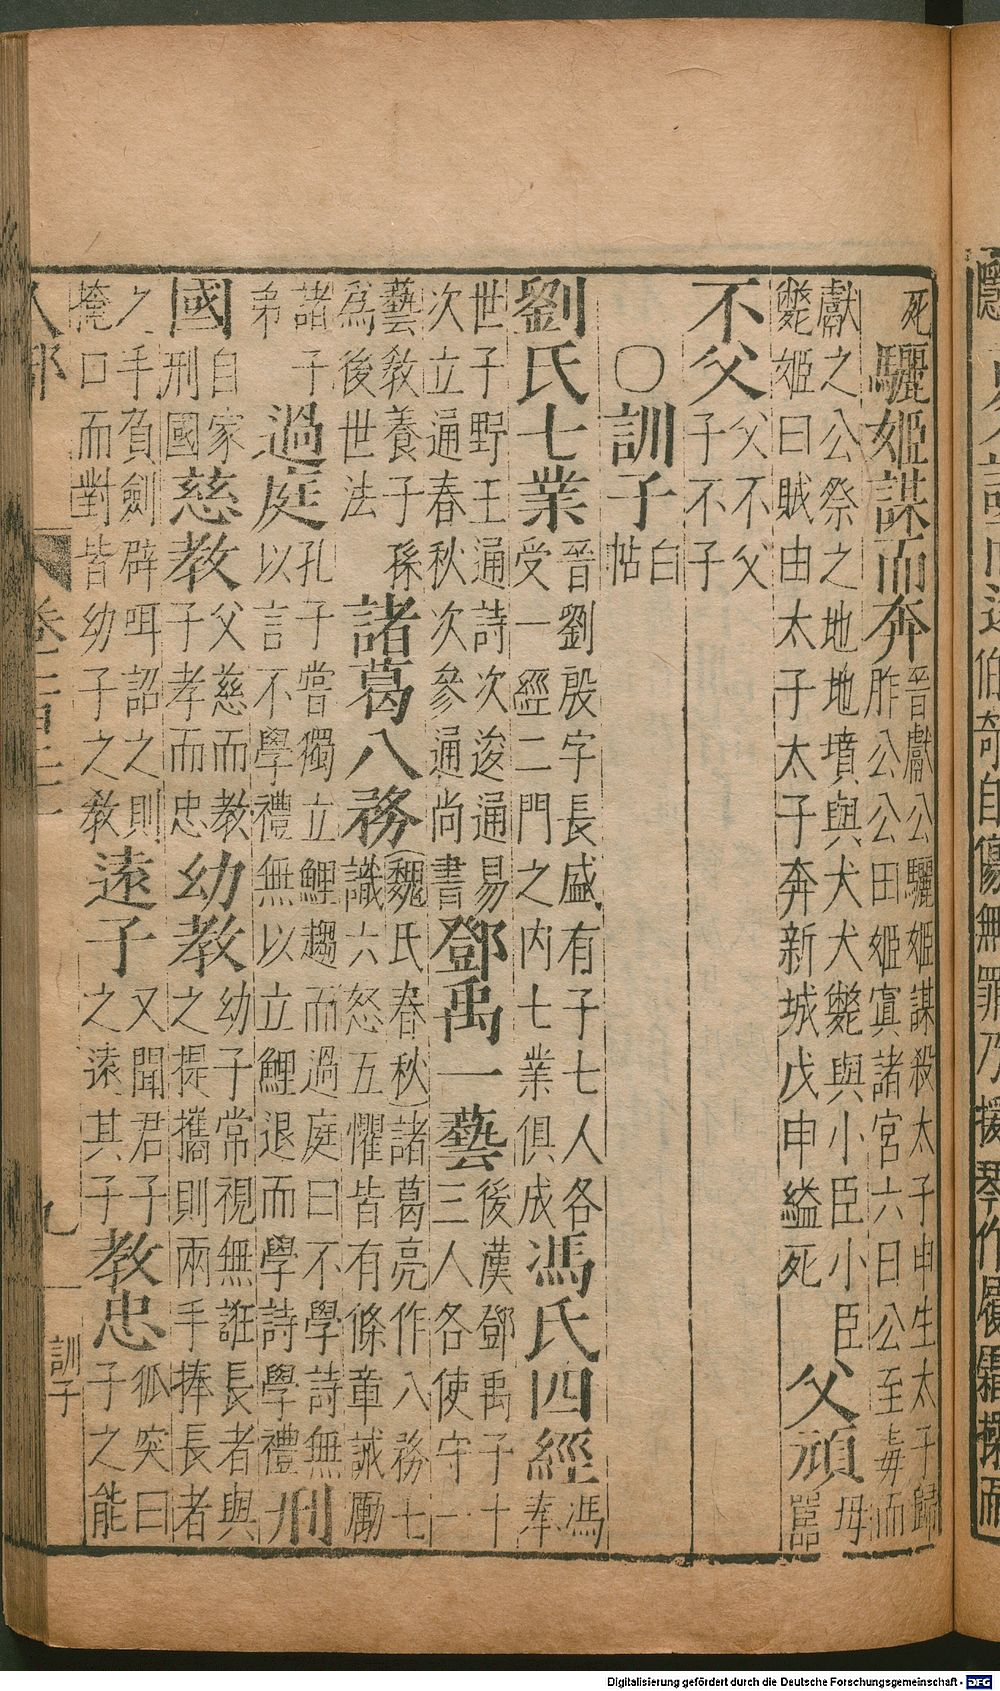 伯奇自傷無罪乃援琴作履霜操而
死驪姬謀而奔晉獻公驪姬謀殺太子申生太子歸胙公公田姬寘諸宮六日公至毒而
獻之公祭之地地墳與犬犬斃與小臣小臣斃姬曰賊由太子太子奔新城戊申縊死父頑母嚚
不父父不父子不子
○訓子白帖
劉氏七業晉劉殷字長盛有子七人各受一經二門之内七業俱成馮氏四經馮奉
世子野王通詩次逡通易次立通春秋次參通尚書鄧禹一藝後漢鄧禹子十三人各使守一
藝教養子孫為後世法諸葛八務(魏氏春秋)諸葛亮作八務七識六怒五懼皆有條章誡勵
諸子弟過庭孔子嘗獨立鯉趨而過庭曰不學詩無以言不學禮無以立鯉退而學詩學禮刑
國自家刑國慈教父慈而教子孝而忠幼教幼子常視無誑長者與之提攜則兩手捧長者
之手負劍辟咡詔之則掩口而對皆幼子之教遠子又聞君子之遠其子教忠狐突曰子之能
人部 卷二百 九 訓子
Digitalisierung gefördert durch die Deutsche Forschungsgemeinschaft - DFG